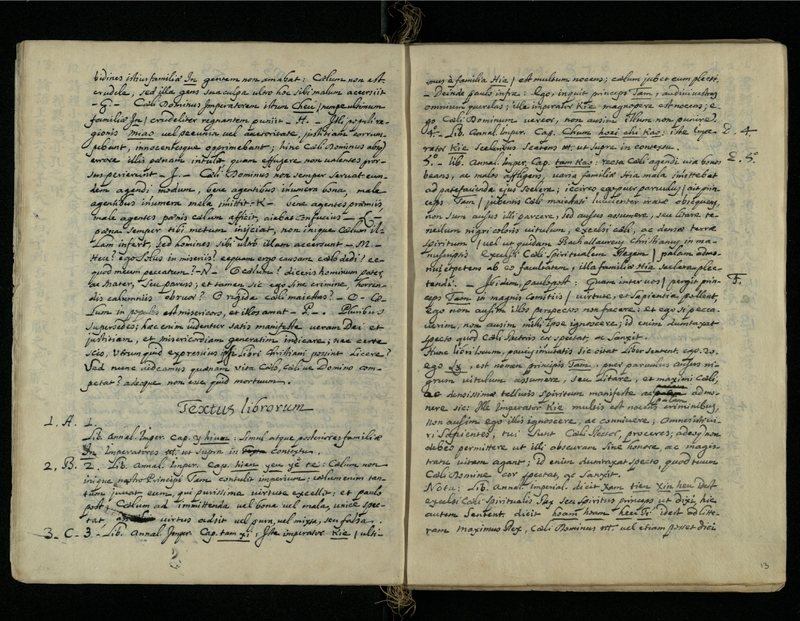 bidines istius familiæ In gentem non amabat: Cælum non est
crudele, sed illa gens sua culpa ultro hoc sibi malum accersiit
- G - Cæli Dominus Imperatorem istum Cheu / nempe ultimum
familiæ In / crudeliter regnantem puniit - H. - Isti populi re
gionis miao vel pecunia vel authoritate, justitiam corrum
pebant, innocentesque opprimebant; hinc Cæli Dominus absq
errore illis pœnam intulit quam effugere non valentes pror
sus perierunt - J. - Cæli Dominus non semper servat eun
dem agendi modum, bene agentibus innumera bona, male
agentibus innumera mala immittit - K - bene agentes præmiis
male agentes pœnis cælum afficit, aiebat Confucius - L -
pœna semper tibi metum injiciat, non inique Cælum il-
lam infert, sed homines sibi ultro illam accersunt - M. -
Heu! ego solus in miseriis! ecquam ergo causam cælo dedi! ec
quod meum peccatum? - N - O cælum! diceris hominum pater,
ac Mater, seu parens; et tamen sic ego sine crimine, horren
dis calamitatibus obruor! O rigida cæli majestas! - O - Cæ
lum in populos est misericors, et illos amat - P - . Pluribus
supersedeo; hæc enim videntur satis manifeste veram Dei et
justitiam, et misericordiam generatim indicare; nec certe
scio, utrum quid expressius ipsi libri Christiani possint dicere?
Sed nunc videamus quænam vita Cælo, Cælive Domino com-
petat? adeoque non esse quid mortuum.
Textus librorum
1. A. 1.
Lib. Annal. Imper. Cap. y hiun: simul atque posteriores familiæ
In Imperatores etc. ut supra in contextu.
2. B. 2. Lib. Annal. Imper. Cap. hien yeu ye te: Cælum non
inique nostro Principi Tam contulit imperium; cælum enim tan-
tum juvat eum, qui purissima virtute excellit; et paulo
post; Cælum ad immittenda vel bona vel mala, unice spec-
tat, virtus adsit vel pura, vel mixta, seu falsa.
3. C. 3. Lib. Annal. Imper. Cap. tam xi; Iste imperator Kie / ulti-
mus è familia Hia / est multum nocens; cælum jubet eum plecti.
- Deinde paulo infra: Ego, inquit princeps Tam, audivi vestras
omnium querelas; ille imperator Kie magnopere est nocens; e-
go Cæli Dominum vereor, non ausim illum non punire.
4. - Lib. Annal. Imper. Cap. Chum hoei chi Kao: iste Impe- D. 4
rator Kie scelestus etc. ut supra in contextu.
5.º - lib. Annal. Imper. Cap. tam Kao: recta Cæli agendi via bonos E. 5.º
beans, ac malos affligens, variæ familiæ Hia mala immittebat
ad patefacienda ejus scelera; idcirco ego nunc parvulus / ait prin
ceps Tam / jubentis cæli mandati luculenter iratæ obsequens,
non sum ausus illi parcere, sed ausus assumere, seu litare te-
nellum nigri coloris vitulum, excelsi cæli, ac densæ terræ
spiritum / vel ut quidam Bachallaureus Christianus in ma-
nuscriptis Excelsi Cæli Spiritualem Regem / palam admo-
nui expetens ab eo facultatem, illa familia Hia scelera plec-
tendi. - Ibidem paulo post: Quum inter vos / pergit prin- F.
ceps Tam in magnis comitiis / virtute, et sapientia polleant,
ego non ausim illos perspectos non facere: Et ego si pecca-
verim, non ausim mihi ipse ignoscere; id enim dumtaxat
specto quod Cæli spectoris cor spectat, ac sanxit.
Hunc libri locum, paucis mutatis sic citat Liber Sentent.
ego Ly, est nomen principis Tam, puer parvulus ausus ni-
grum vitulum assumere, seu litare, et maximi Cæli,
ac densissimæ telluris spiritum manifeste ac palam admo-
nere sic: Ille Imperator Kie multis est nocens criminibus,
non ausim ego illi ignoscere, ac connivere; Omnes isti vi-
ri sapientes, tui sunt Cæli Rector, proceres; adeo non
debeo permittere ut illi obscuram sine honore ac magis-
tratu vitam agant; id enim dumtaxat specto, quod tuum
Cæli Domine cor spectat, ac sanxit.
Nota: Lib. Annal. Imperial. dicit Xam tien xin heu Das
excelsi Cæli spiritualis Rex seu spiritus princeps ut dixi, hic
autem Sentent. dicit hoam hoam heu ti idest ad litte-
ram maximus Rex, Cæli Dominus etc. vel etiam posset dici
13